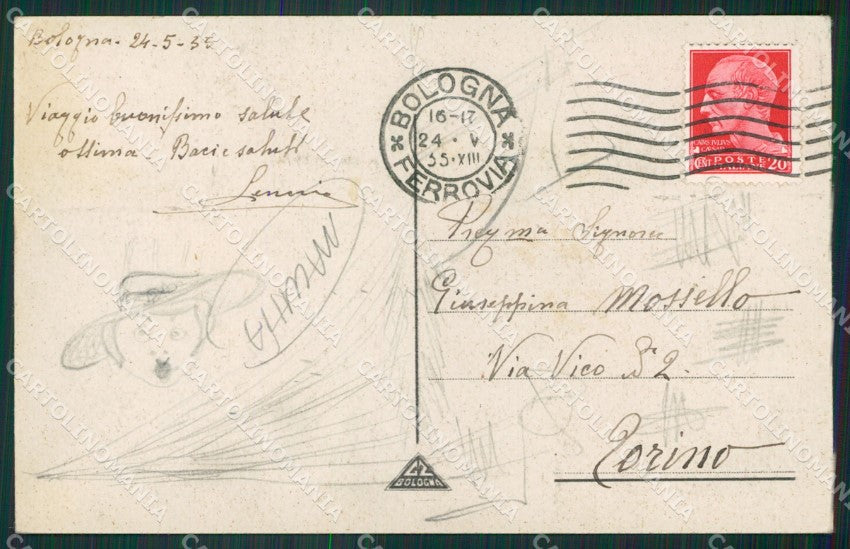 Bologna - 24-5-35
Viaggio buonissimo salute
ottima Baci e saluti
BOLOGNA
16-17
24 · V
35·XIII
FERROVIA
CAIUS IULIUS
CAESAR
CENT POSTE 20
ITALIANE
Preg.ma Signora
Giuseppina Mossello
Via Vico No 2.
Torino
CZ
BOLOGNA
CARTOLINOMANIA